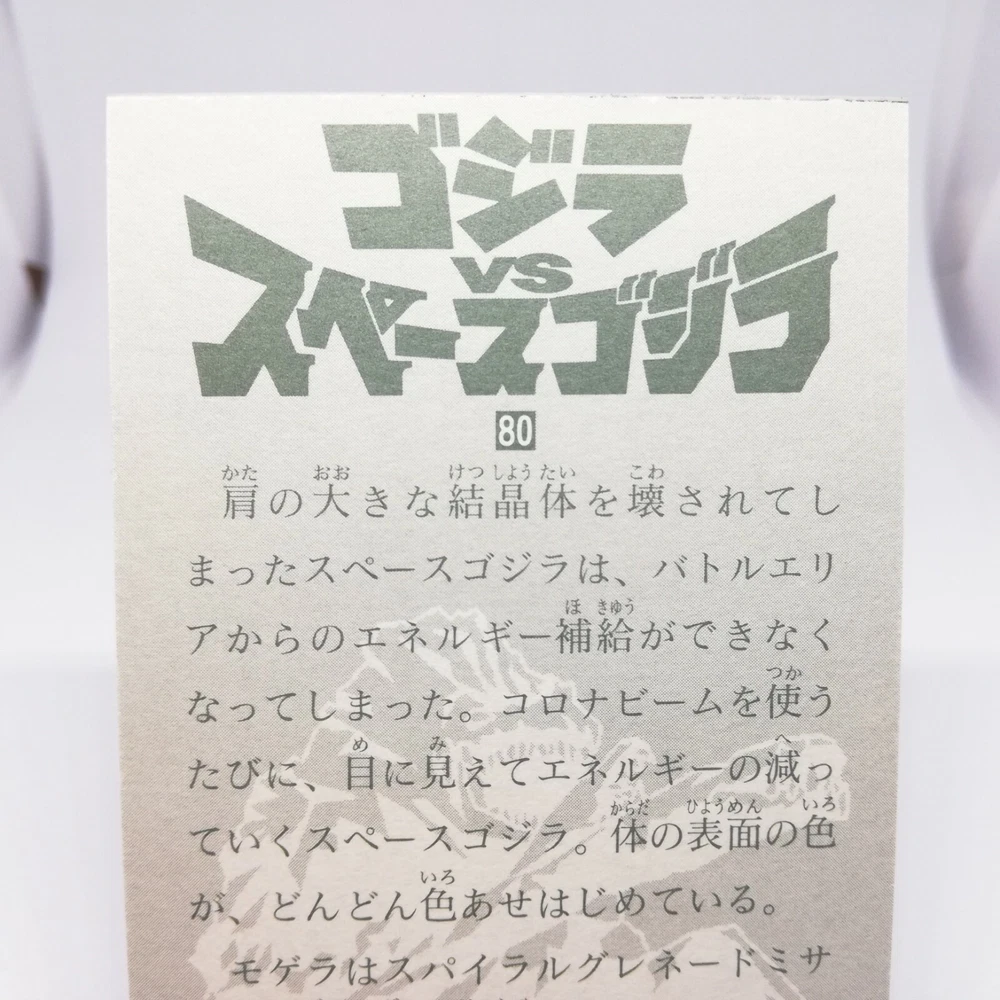 ゴジラ
VS
スペースゴジラ
80
肩の大きな結晶体を壊されてし
まったスペースゴジラは、バトルエリ
アからのエネルギー補給ができなく
なってしまった。コロナビームを使う
たびに、目に見えてエネルギーの減っ
ていくスペースゴジラ。体の表面の色
が、どんどん色あせはじめている。
モゲラはスパイラルグレネードミサ